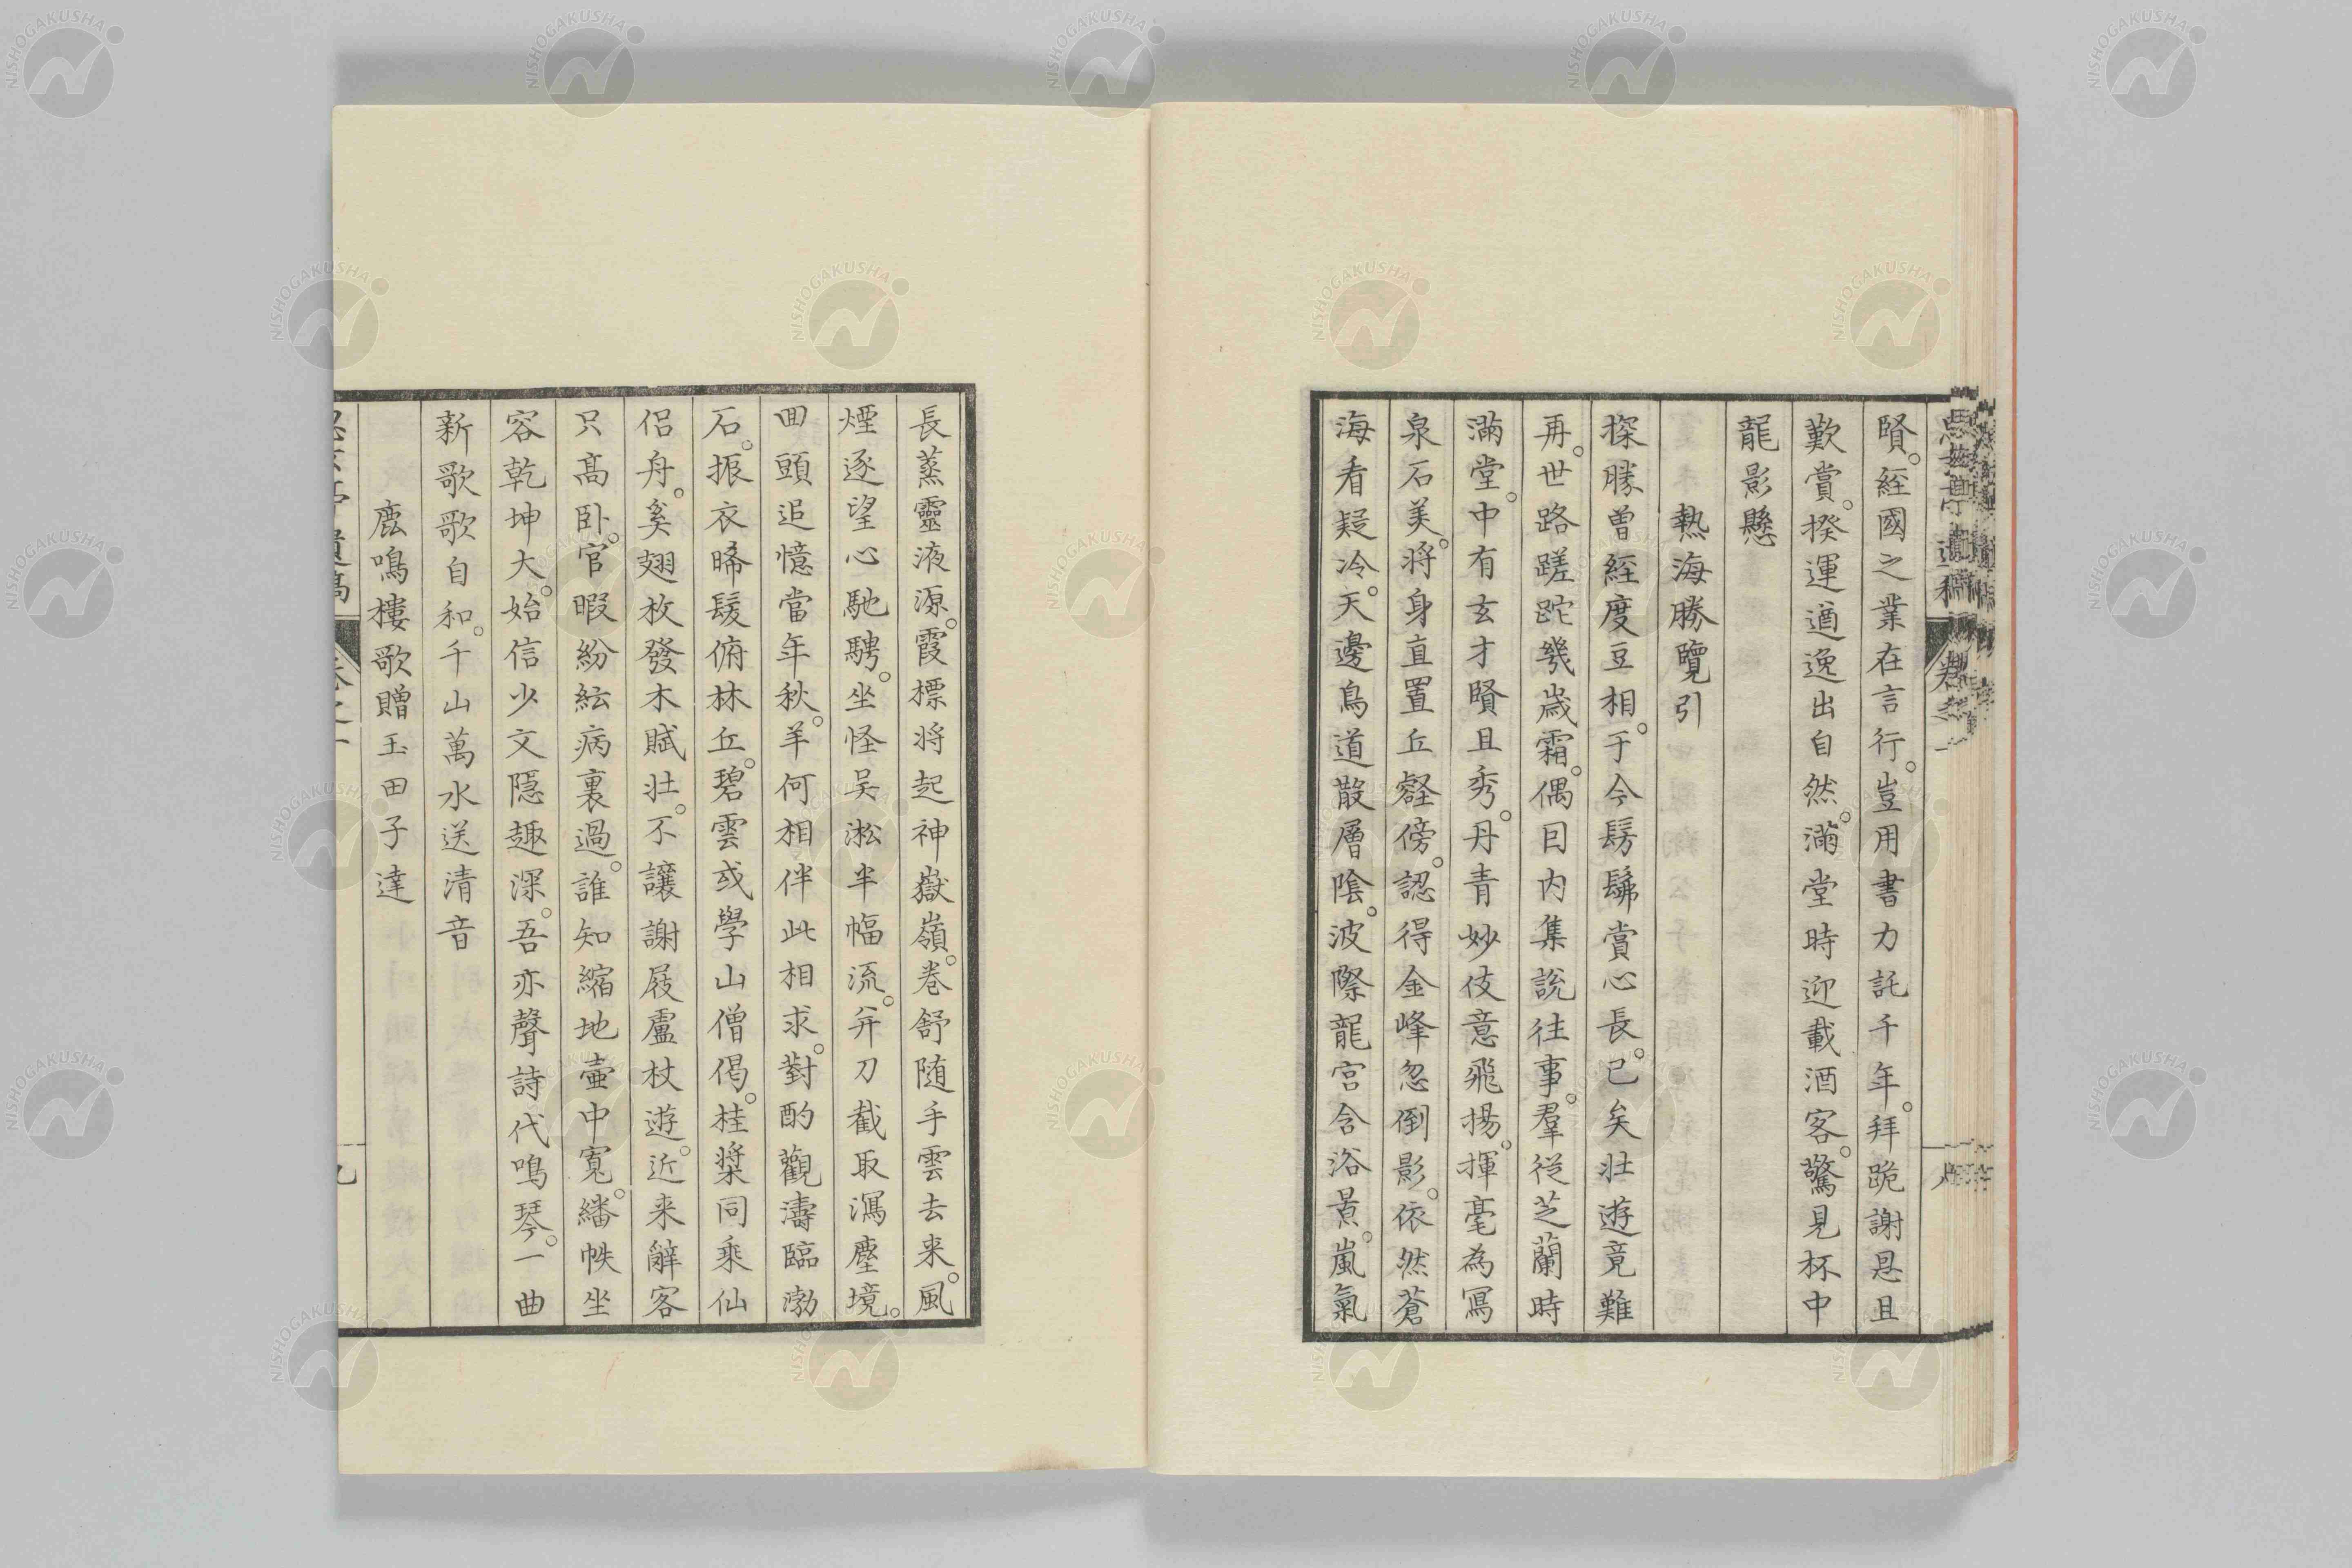 賢。経國之業在言行。豈用書力託千年。拜跪謝恩且
歎賞。揆運遒逸出自然。滿堂時迎載酒客。驚見杯中
龍影懸
熱海勝覽引
探勝曾経度豆相。于今髣髴賞心長。已矣壮遊竟難
再。世路蹉跎幾歳霜。偶日内集說往事。羣従芝蘭時
滿堂。中有玄才賢且秀。丹青妙伎意飛揚。揮毫為寫
泉石美。将身直置丘壑傍。認得金峰忽倒影。依然蒼
海看疑冷。天邊鳥道散層陰。波際龍宮含浴景。嵐氣
長蒸靈液源。霞標将起神嶽嶺。巻舒随手雲去来。風
煙逐望心馳騁。坐怪吴淞半幅流。并刀截取瀉塵境。
回頭追憶當年秋。羊何相伴此相求。對酌觀濤臨渤
石。振衣晞髪俯林丘。碧雲或學山僧偈。桂槳同乗仙
侶舟。奚翅枚發木賦壮。不讓謝屐盧杖遊。近来辭客
只高卧。官暇紛紜病裏過。誰知縮地壷中寛。繙帙坐
容乾坤大。始信少文隱趣深。吾亦聲詩代鳴琴。一曲
新歌歌自和。千山萬水送清音
鹿鳴樓歌贈玉田子達
遺稿
NISHOGAKUSHA